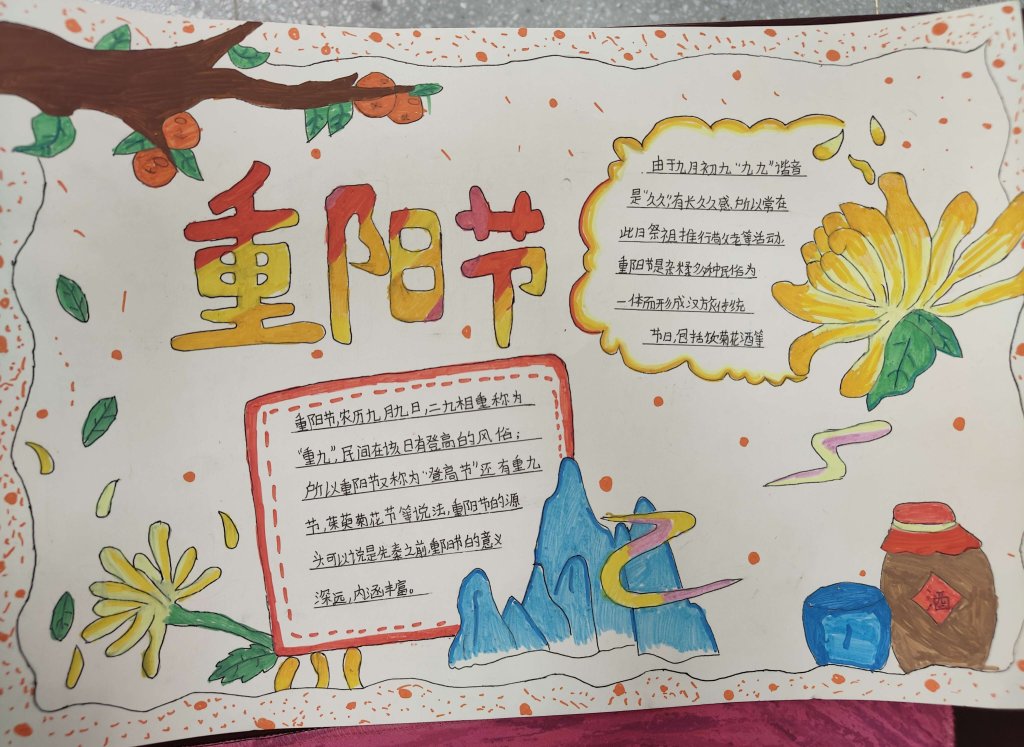 重阳节
由于九月初九“九九”谐音
是“久久”有长久久感,所以常在
此日祭祖推行敬老等活动
重阳节是杂糅多种民俗为
一体而形成汉族传统
节日,包括饮菊花酒等
重阳节,农历九月九日,二九相重称为
“重九”,民间在该日有登高的风俗;
所以重阳节又称为“登高节”还有重九
节,茱萸菊花节等说法,重阳节的源
头可以说是先秦之前,重阳节的意义
深远,内涵丰富。
酒